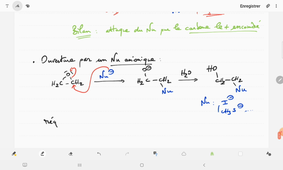 Enregistrer
Bilan : attaque du Nu par le carbone le + encombré
• Ouverture par un Nu anionique :
O O⊖ HO
H₂C — CH₂ Nu⊖ → H₂C — CH₂ H₂O → CH₂ — CH₂
Nu Nu
Nu : I⊖
CH₃S⊖ .
méq